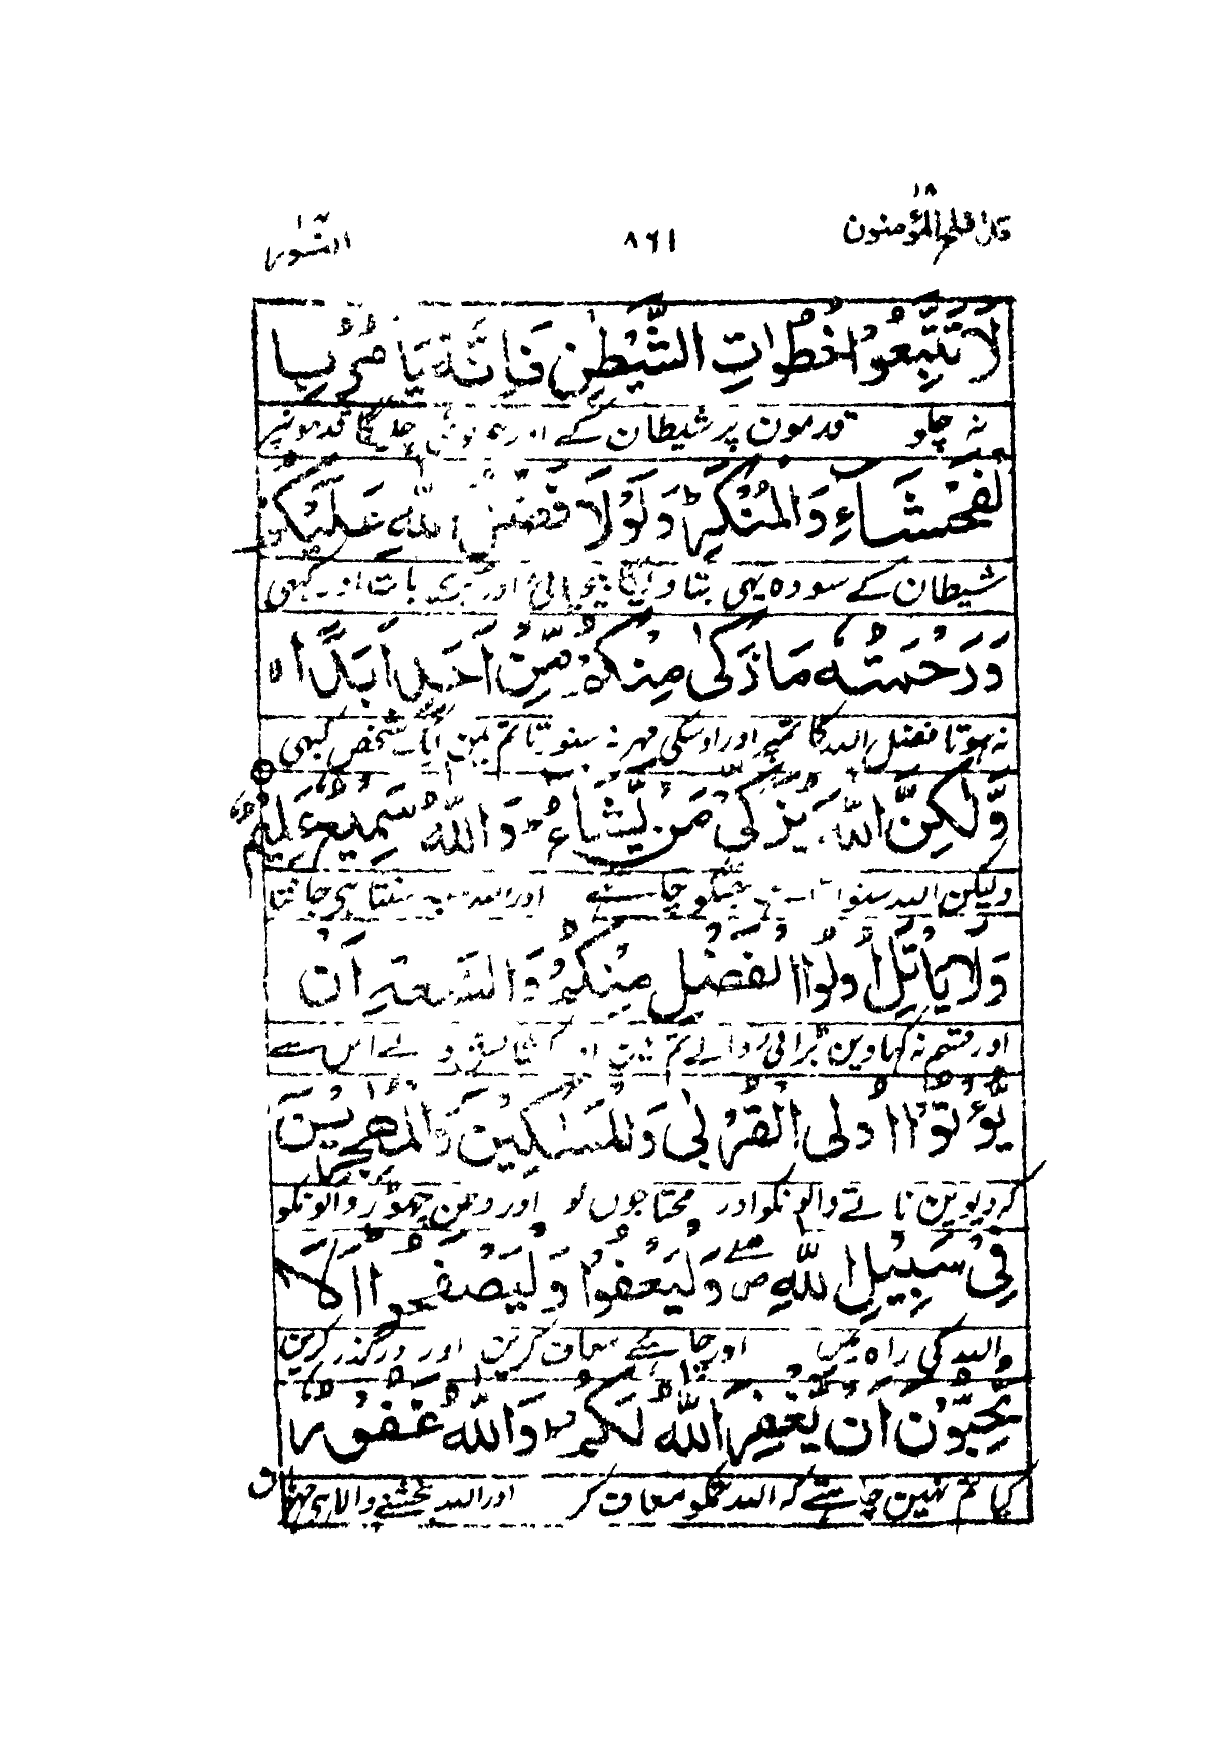 ١٨
قد افلح المؤمنون
٨٦١
النّور
لَا تَتَّبِعُوْا خُطُوٰتِ الشَّيْطٰنِ فَاِنَّهٗ يَاْمُرُ بِا
نہ چلو قدمون پر شیطان کے اور جو کوئی چلیگا قدمونپر
لْفَحْشَآءِ وَالْمُنْكَرِ ؕ وَلَوْلَا فَضْلُ اللّٰهِ عَلَيْكُمْ
شیطان کے سو وہ یہی بتاویگا بیحیائی اور بری بات اور کبھی
وَرَحْمَتُهٗ مَا زَكٰى مِنْكُمْ مِّنْ اَحَدٍ اَبَدًا ۙ
نہ ہوتا فضل اللہ کا تمپر اور اوسکی مہر نہ سنورتا تم مین ایک شخص کبھی
وَّلٰكِنَّ اللّٰهَ يُزَكِّيْ مَنْ يَّشَآءُ ؕ وَاللّٰهُ سَمِيْعٌ عَلِيْمٌ
ولیکن اللہ سنوارتا ہے جسکو چاہے اور اللہ سب سنتا ہی جانتا
وَلَا يَاْتَلِ اُولُوا الْفَضْلِ مِنْكُمْ وَالسَّعَةِ اَنْ
اور قسم نہ کہاوین بڑائی والے تم مین اور کشایش والے اس سے
يُّؤْتُوْۤا اُولِى الْقُرْبٰى وَالْمَسٰكِيْنَ وَالْمُهٰجِرِيْنَ
کہ دیوین ناتے والونکو اور محتاجوں کو اور وطن چہوڑنیوالونکو
فِيْ سَبِيْلِ اللّٰهِ ۖ وَلْيَعْفُوْا وَلْيَصْفَحُوْا ؕ اَلَا
اللہ کی راہ میں اور چاہئے معاف کرین اور درگذر کرین
تُحِبُّوْنَ اَنْ يَّغْفِرَ اللّٰهُ لَكُمْ ؕ وَاللّٰهُ غَفُوْرٌ
کیا تم نہین چاہتے کہ اللہ تمکو معاف کر اور اللہ بخشنے والا ہی